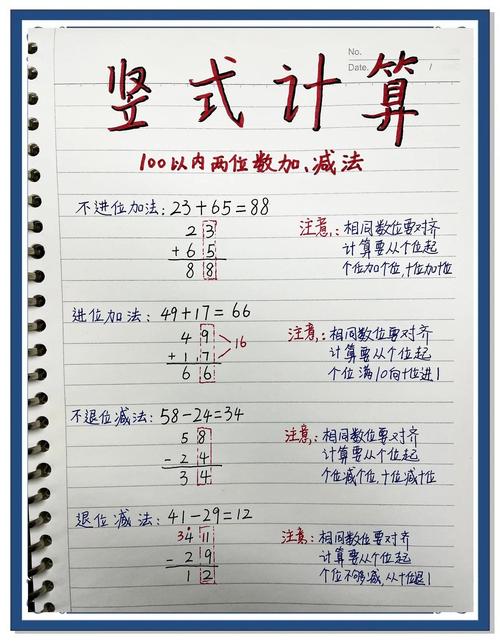 No.
Date. /
竖式计算
100以内两位数加、减法
不进位加法:23+65=88
2 3
+ 6 5
8 8
注意:相同数位要对齐
计算要从个位起
个位加个位,十位加十位
进位加法:49+17=66
4 9
+ 1 7
6 6
16
注意:相同数位要对齐
计算要从个位起
个位满10向十位进1
不退位减法:58-24=34
5 8
- 2 4
3 4
注意:相同数位要对齐
计算要从个位起
个位减个位,十位减十位
退位减法:41-29=12
3 4 11
- 2 9
1 2
注意:相同数位要对齐
计算要从个位起
个位不够减,从十位退1